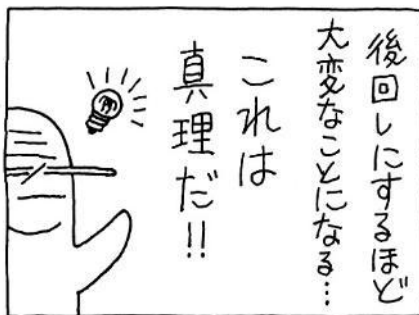 後回しにするほど
大変なことになる…
これは
真理だ!!